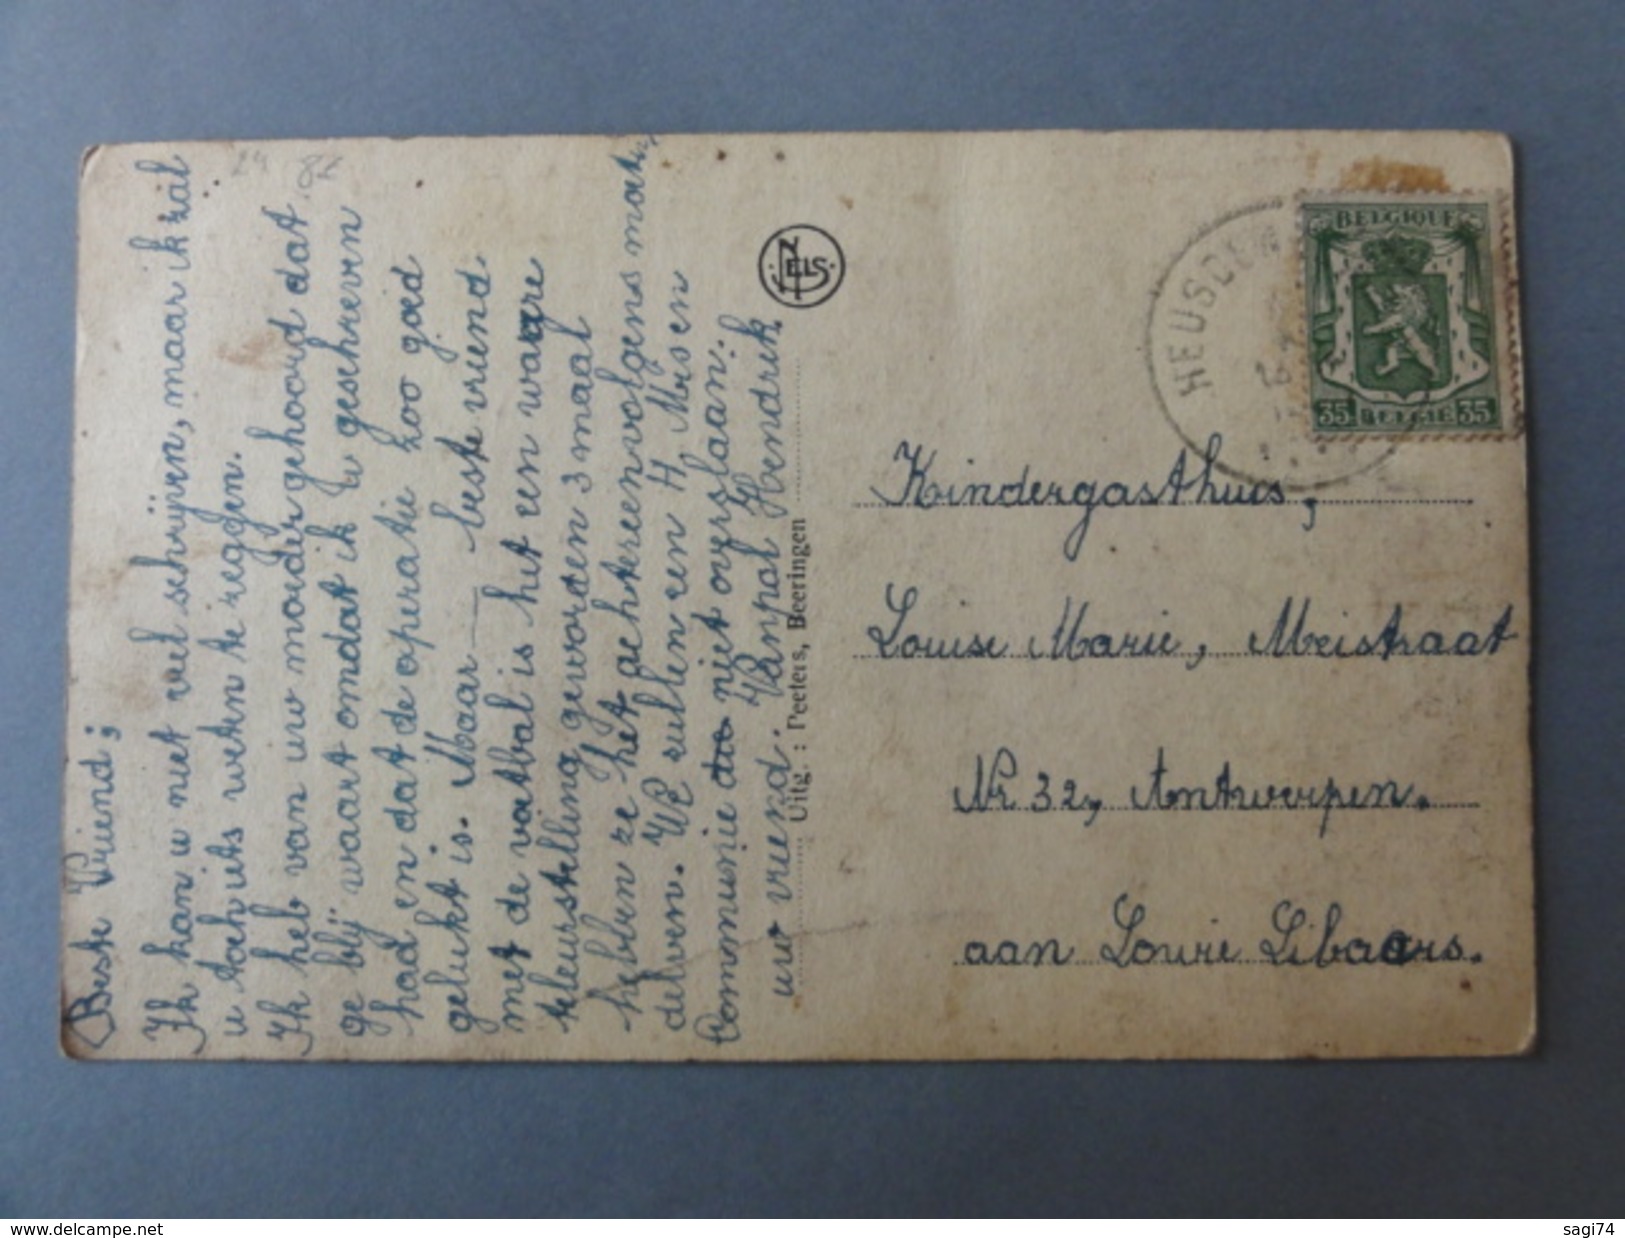 24 82
Beste Vriend;
Ik kan u niet veel schrijven, maar ik zal
u toch iets weten te zeggen.
Ik heb van uw moeder gehoord dat
ge blij waart omdat ik u geschreven
had en dat de operatie zoo goed
gelukt is. Maar — beste vriend
met de voetbal is het een waare
teleurstelling geworden 3 maal
hebben ze het achtereenvolgens moeten
delven. We zullen een H. Mis en
Communie niet overslaan.
uw vriend. Vanpal Hendrik
NELS
Uitg.: Peeters, Beeringen
HEUSDEN
BELGIQUE
35 BELGIË 35
Kindergasthuis,
Louise Marie, Meistraat
Nr 32, Antwerpen.
aan Lowie Libaers.
sagi74
www.delcampe.net